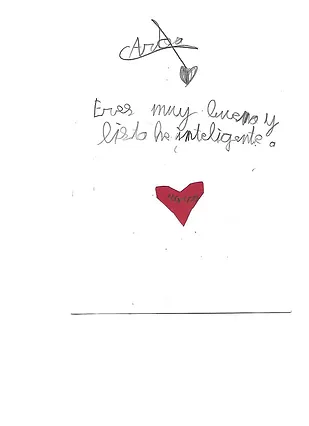 Eres muy bueno y
listo he inteligente.